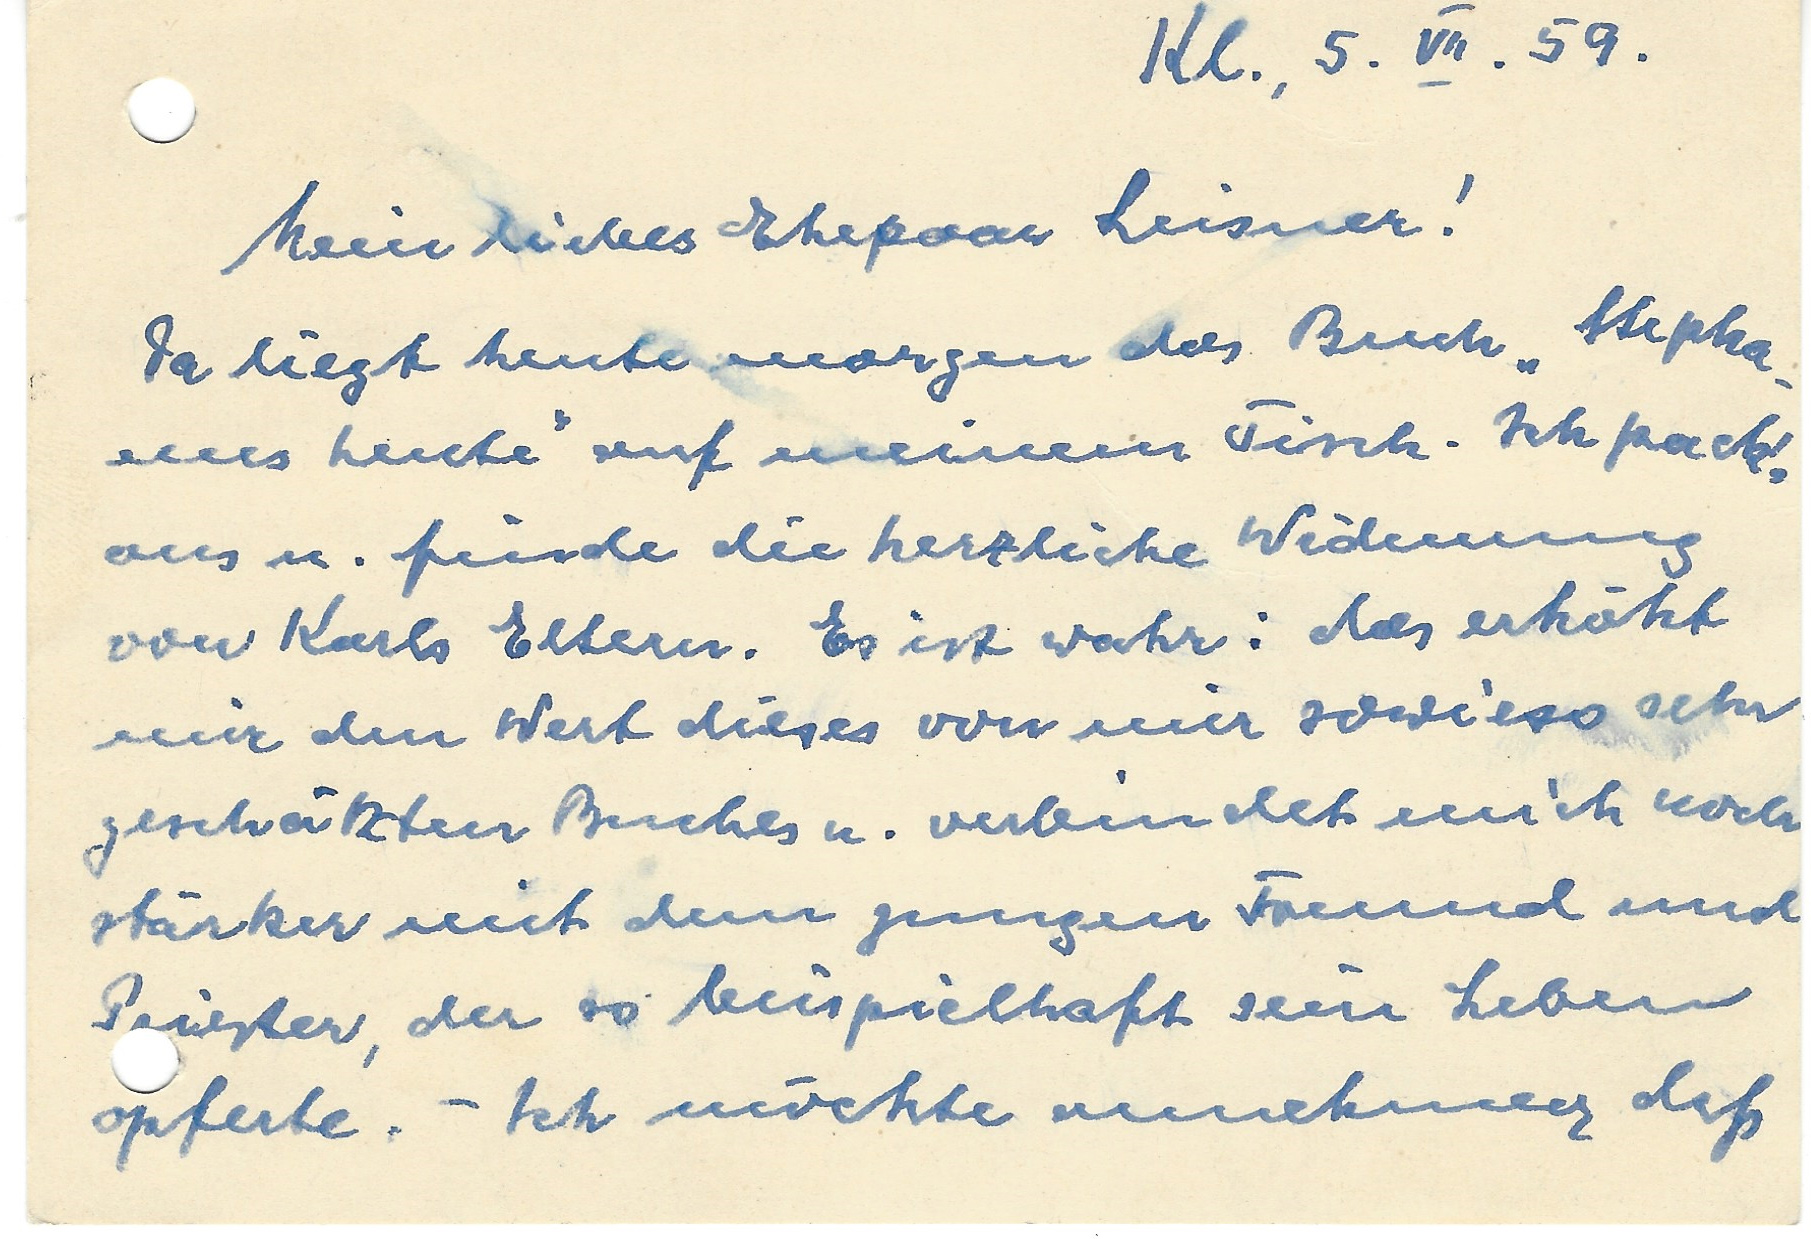 Kl., 5. VII. 59.
Mein liebes Ehepaar Leisner!
Da liegt heute morgen das Buch „Stepha-
nus heute“ auf meinem Tisch. Ich pack's
aus u. finde die herzliche Widmung
von Karls Eltern. Es ist wahr: das erhöht
mir den Wert dieses von mir sowieso sehr
geschätzten Buches u. verbindet mich noch
stärker mit dem jungen Freund und
Priester, der so beispielhaft sein Leben
opferte. – Ich möchte annehmen, daß